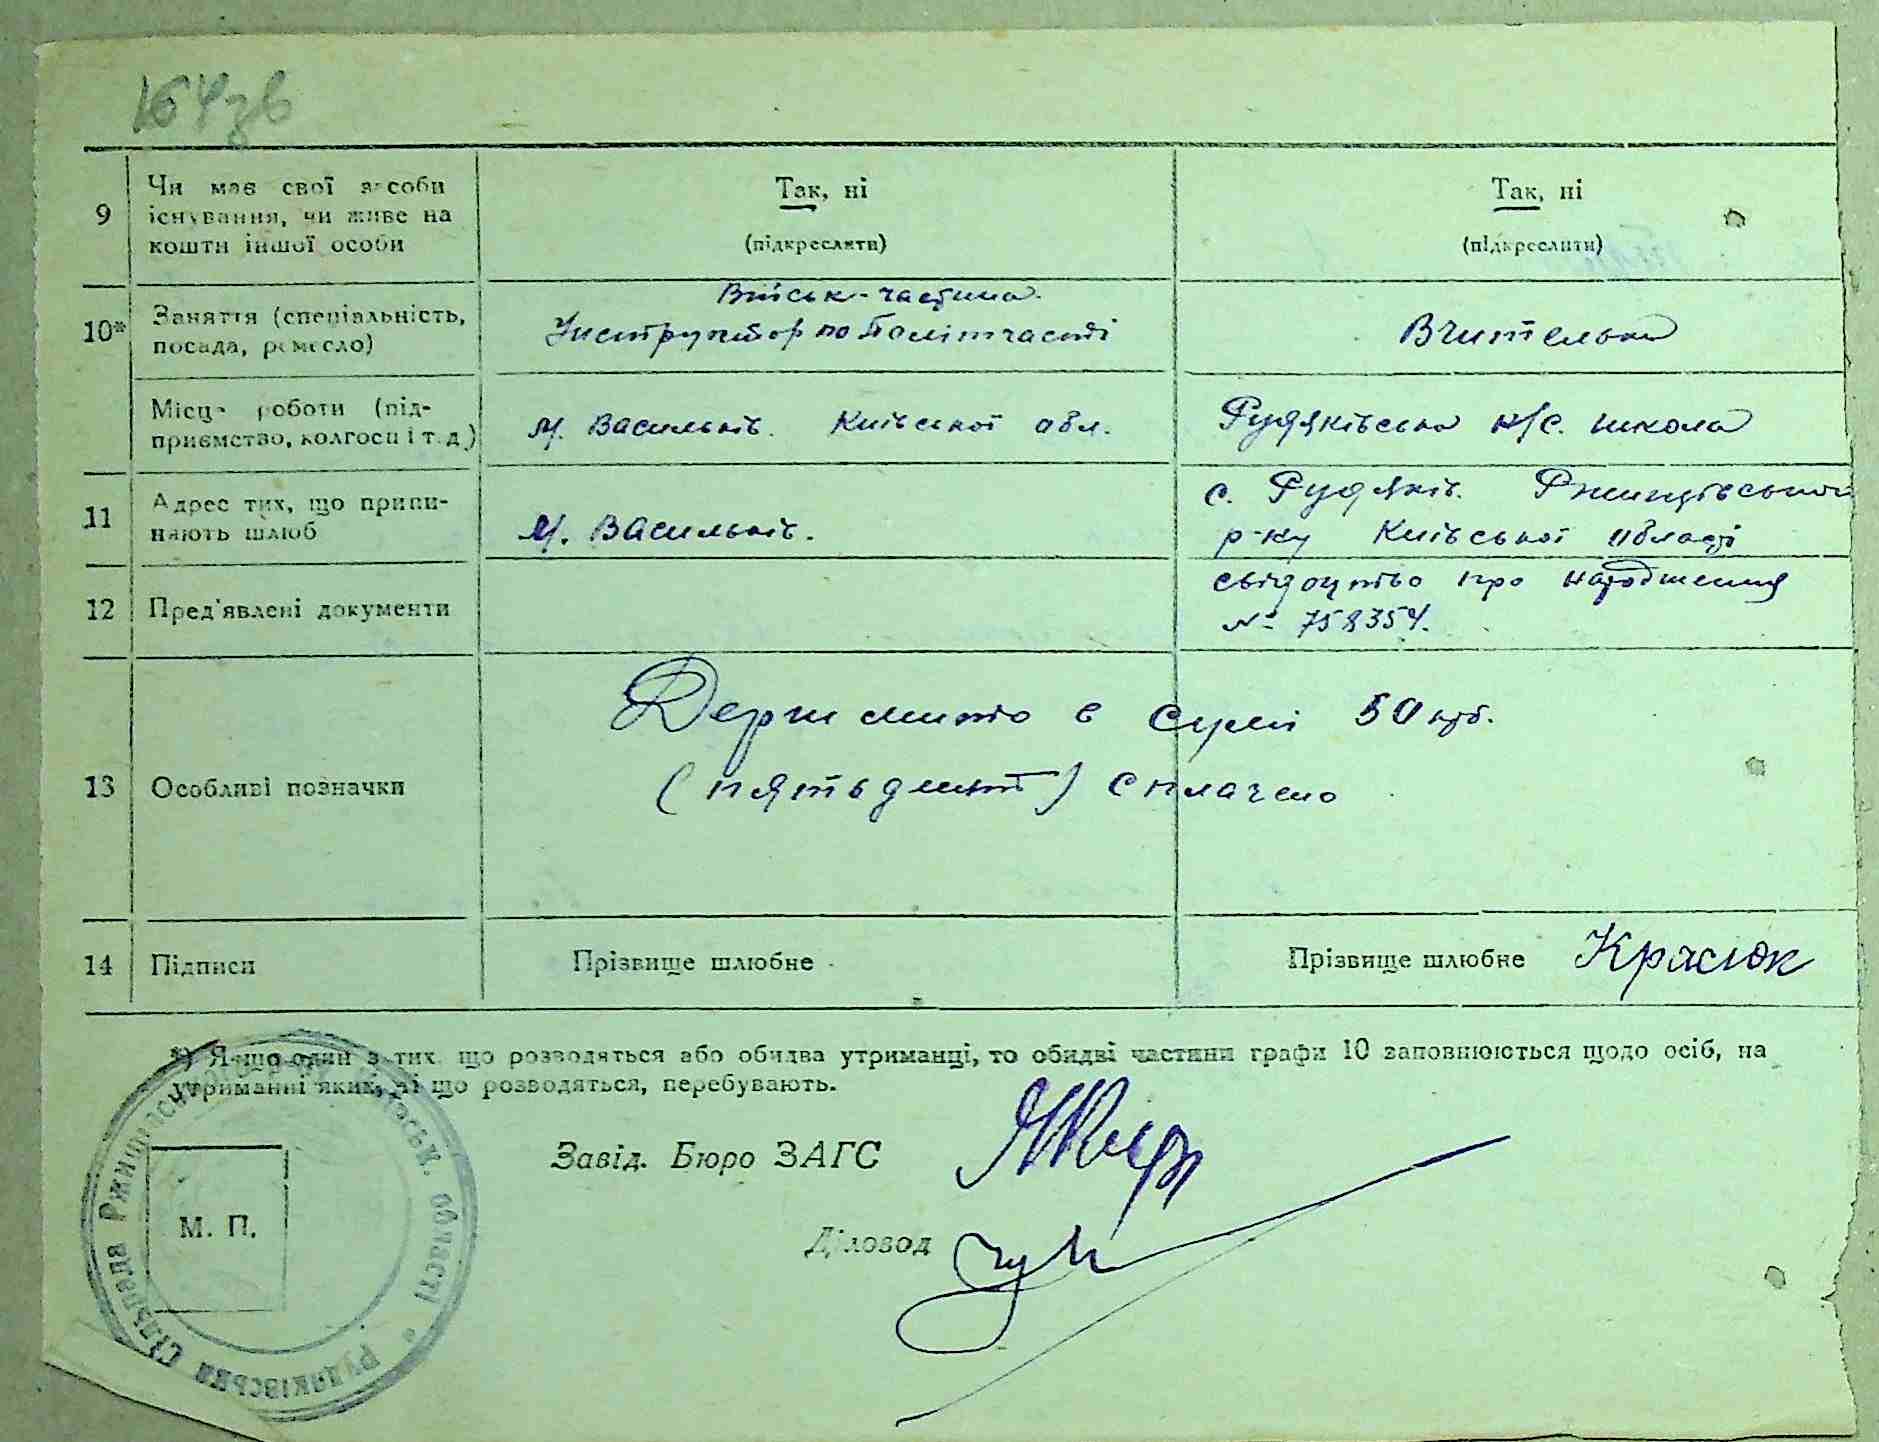 164зв
9 Чи має свої засоби існування, чи живе на кошти іншої особи
Так, ні
(підкреслити)
Так, ні
(підкреслити)
10* Заняття (спеціальність, посада, ремесло)
Військ-частина.
Інструктор по Політчасті
Вчителька
Місце роботи (підприємство, колгосп і т. д.)
м. Васильків. Київської обл.
Рудяківська н/с. школа
11 Адрес тих, що припиняють шлюб
м. Васильків.
с. Рудяків. Ржищівського
р-ку Київської області
12 Пред'явлені документи
свідоцтво про народження
№ 758354.
13 Особливі позначки
Держмито в сумі 50 крб.
(пятьдесят) сплачено
14 Підписи
Прізвище шлюбне
Прізвище шлюбне Красюк
*) Якщо один з тих, що розводяться або обидва утриманці, то обидві частини графи 10 заповнюються щодо осіб, на
утриманні яких, ті що розводяться, перебувають.
Завід. Бюро ЗАГС
Діловод
М. П.
Рудяківська сільрада Ржищівськ області